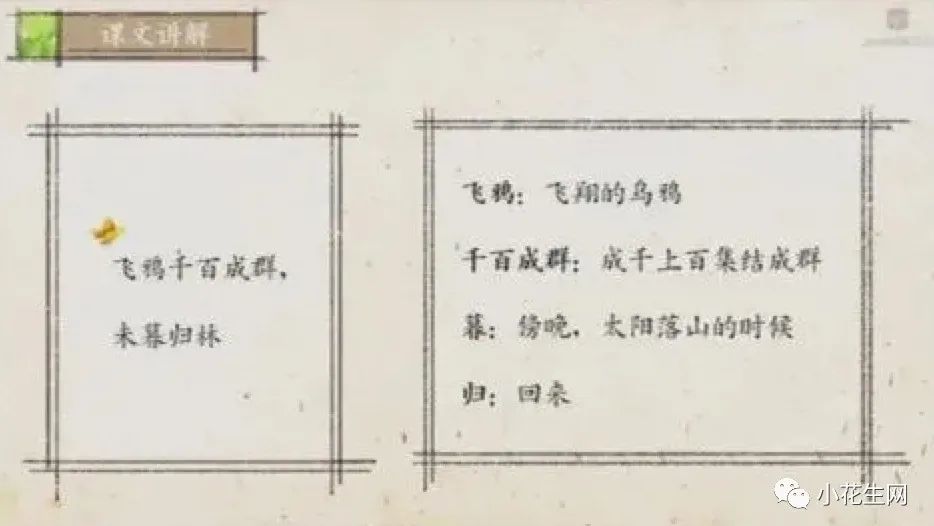 课文讲解
飞鸦千百成群，
未暮归林
飞鸦：飞翔的乌鸦
千百成群：成千上百集结成群
暮：傍晚，太阳落山的时候
归：回来
小花生网